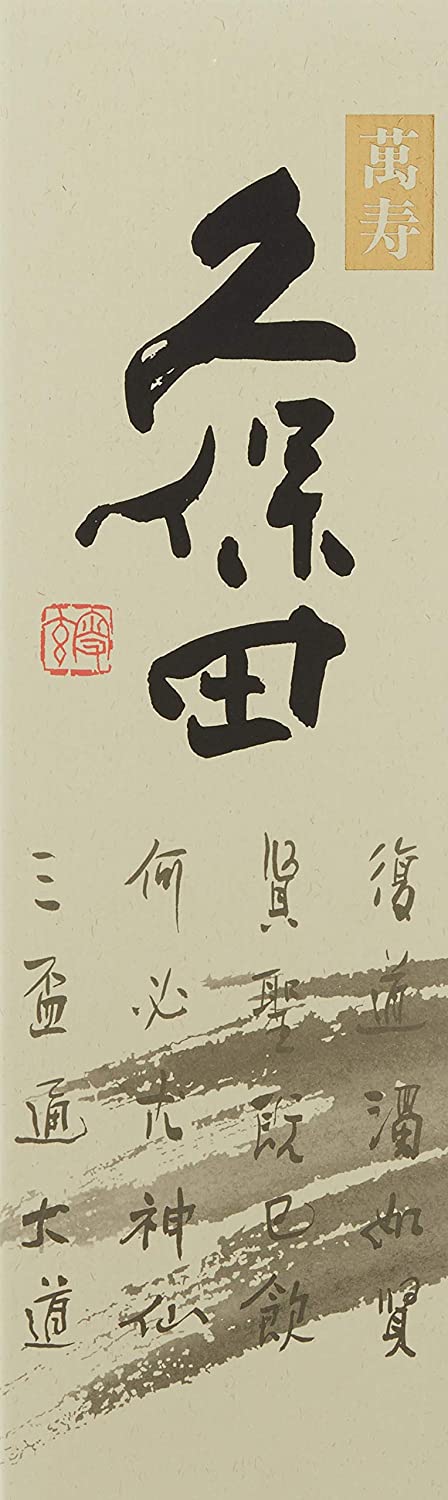 萬寿
久保田
復道濁如賢
賢聖既已飲
何必求神仙
三盃通大道